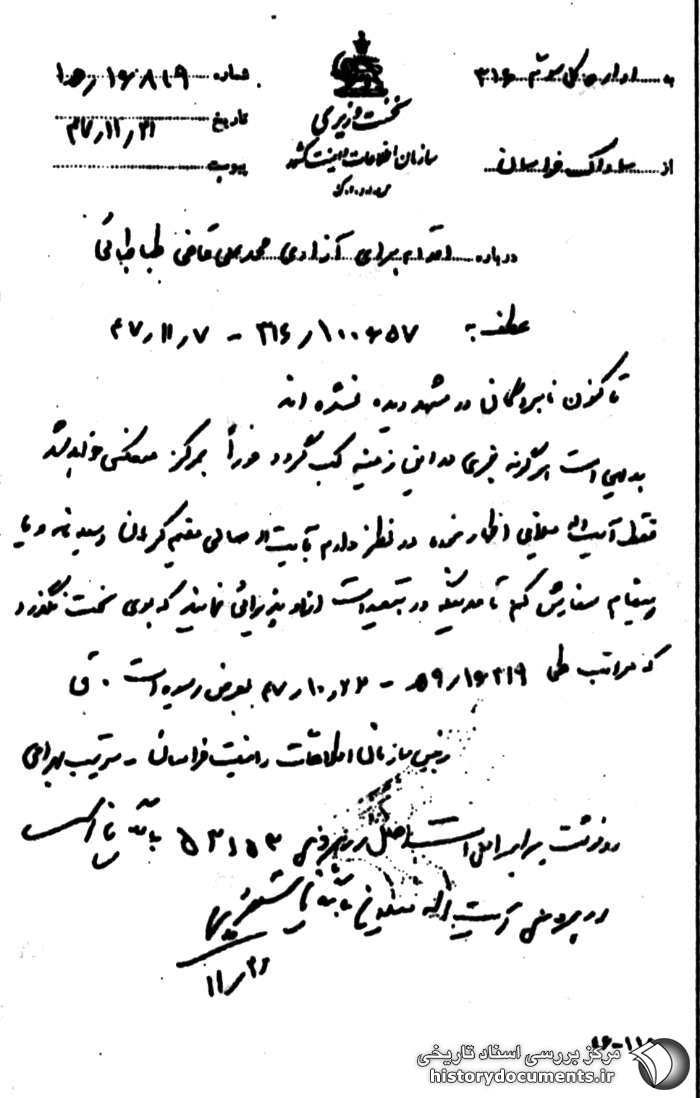 به اداره کل سوم ۳۱۶
شماره ۱۶۸۱۹/ه۱
نخست وزیری
تاریخ ۴۷/۱۱/۲۱
سازمان اطلاعات و امنیت کشور
از ساواک خراسان
پیوست
س.ا.و.ا.ک
درباره اقدام برای آزادی محمدعلی قاضی طباطبائی
عطف به ۳۱۶/۱۰۰۶۵۷ - ۴۷/۱۱/۷
تاکنون نامبردگانی در مشهد دیده نشده اند
بدیهی است هرگونه خبری در این زمینه کسب گردد فوراً بمرکز منعکس خواهد شد
فقط آیت اله میلانی اظهار نموده در نظر دارم بآیت اله صالحی مقیم کرمان وسیله نامه و یا
پیغام سفارش کنم تا مدتیکه در تبعید است از او پذیرائی نمایند که بوی سخت نگذرد
که مراتب طی ۱۶۳۱۹/ه۹ - ۴۷/۱۰/۲۲ بعرض رسیده است. ق
رئیس سازمان اطلاعات و امنیت خراسان - سرتیپ بهرامی
رونوشت برابر اصل است اصل در پرونده ۵۳۱۵۳ بایگانی است
در پرونده آیت اله میلانی بایگانی شود
۱۱/۲۶
مرکز بررسی اسناد تاریخی
historydocuments.ir